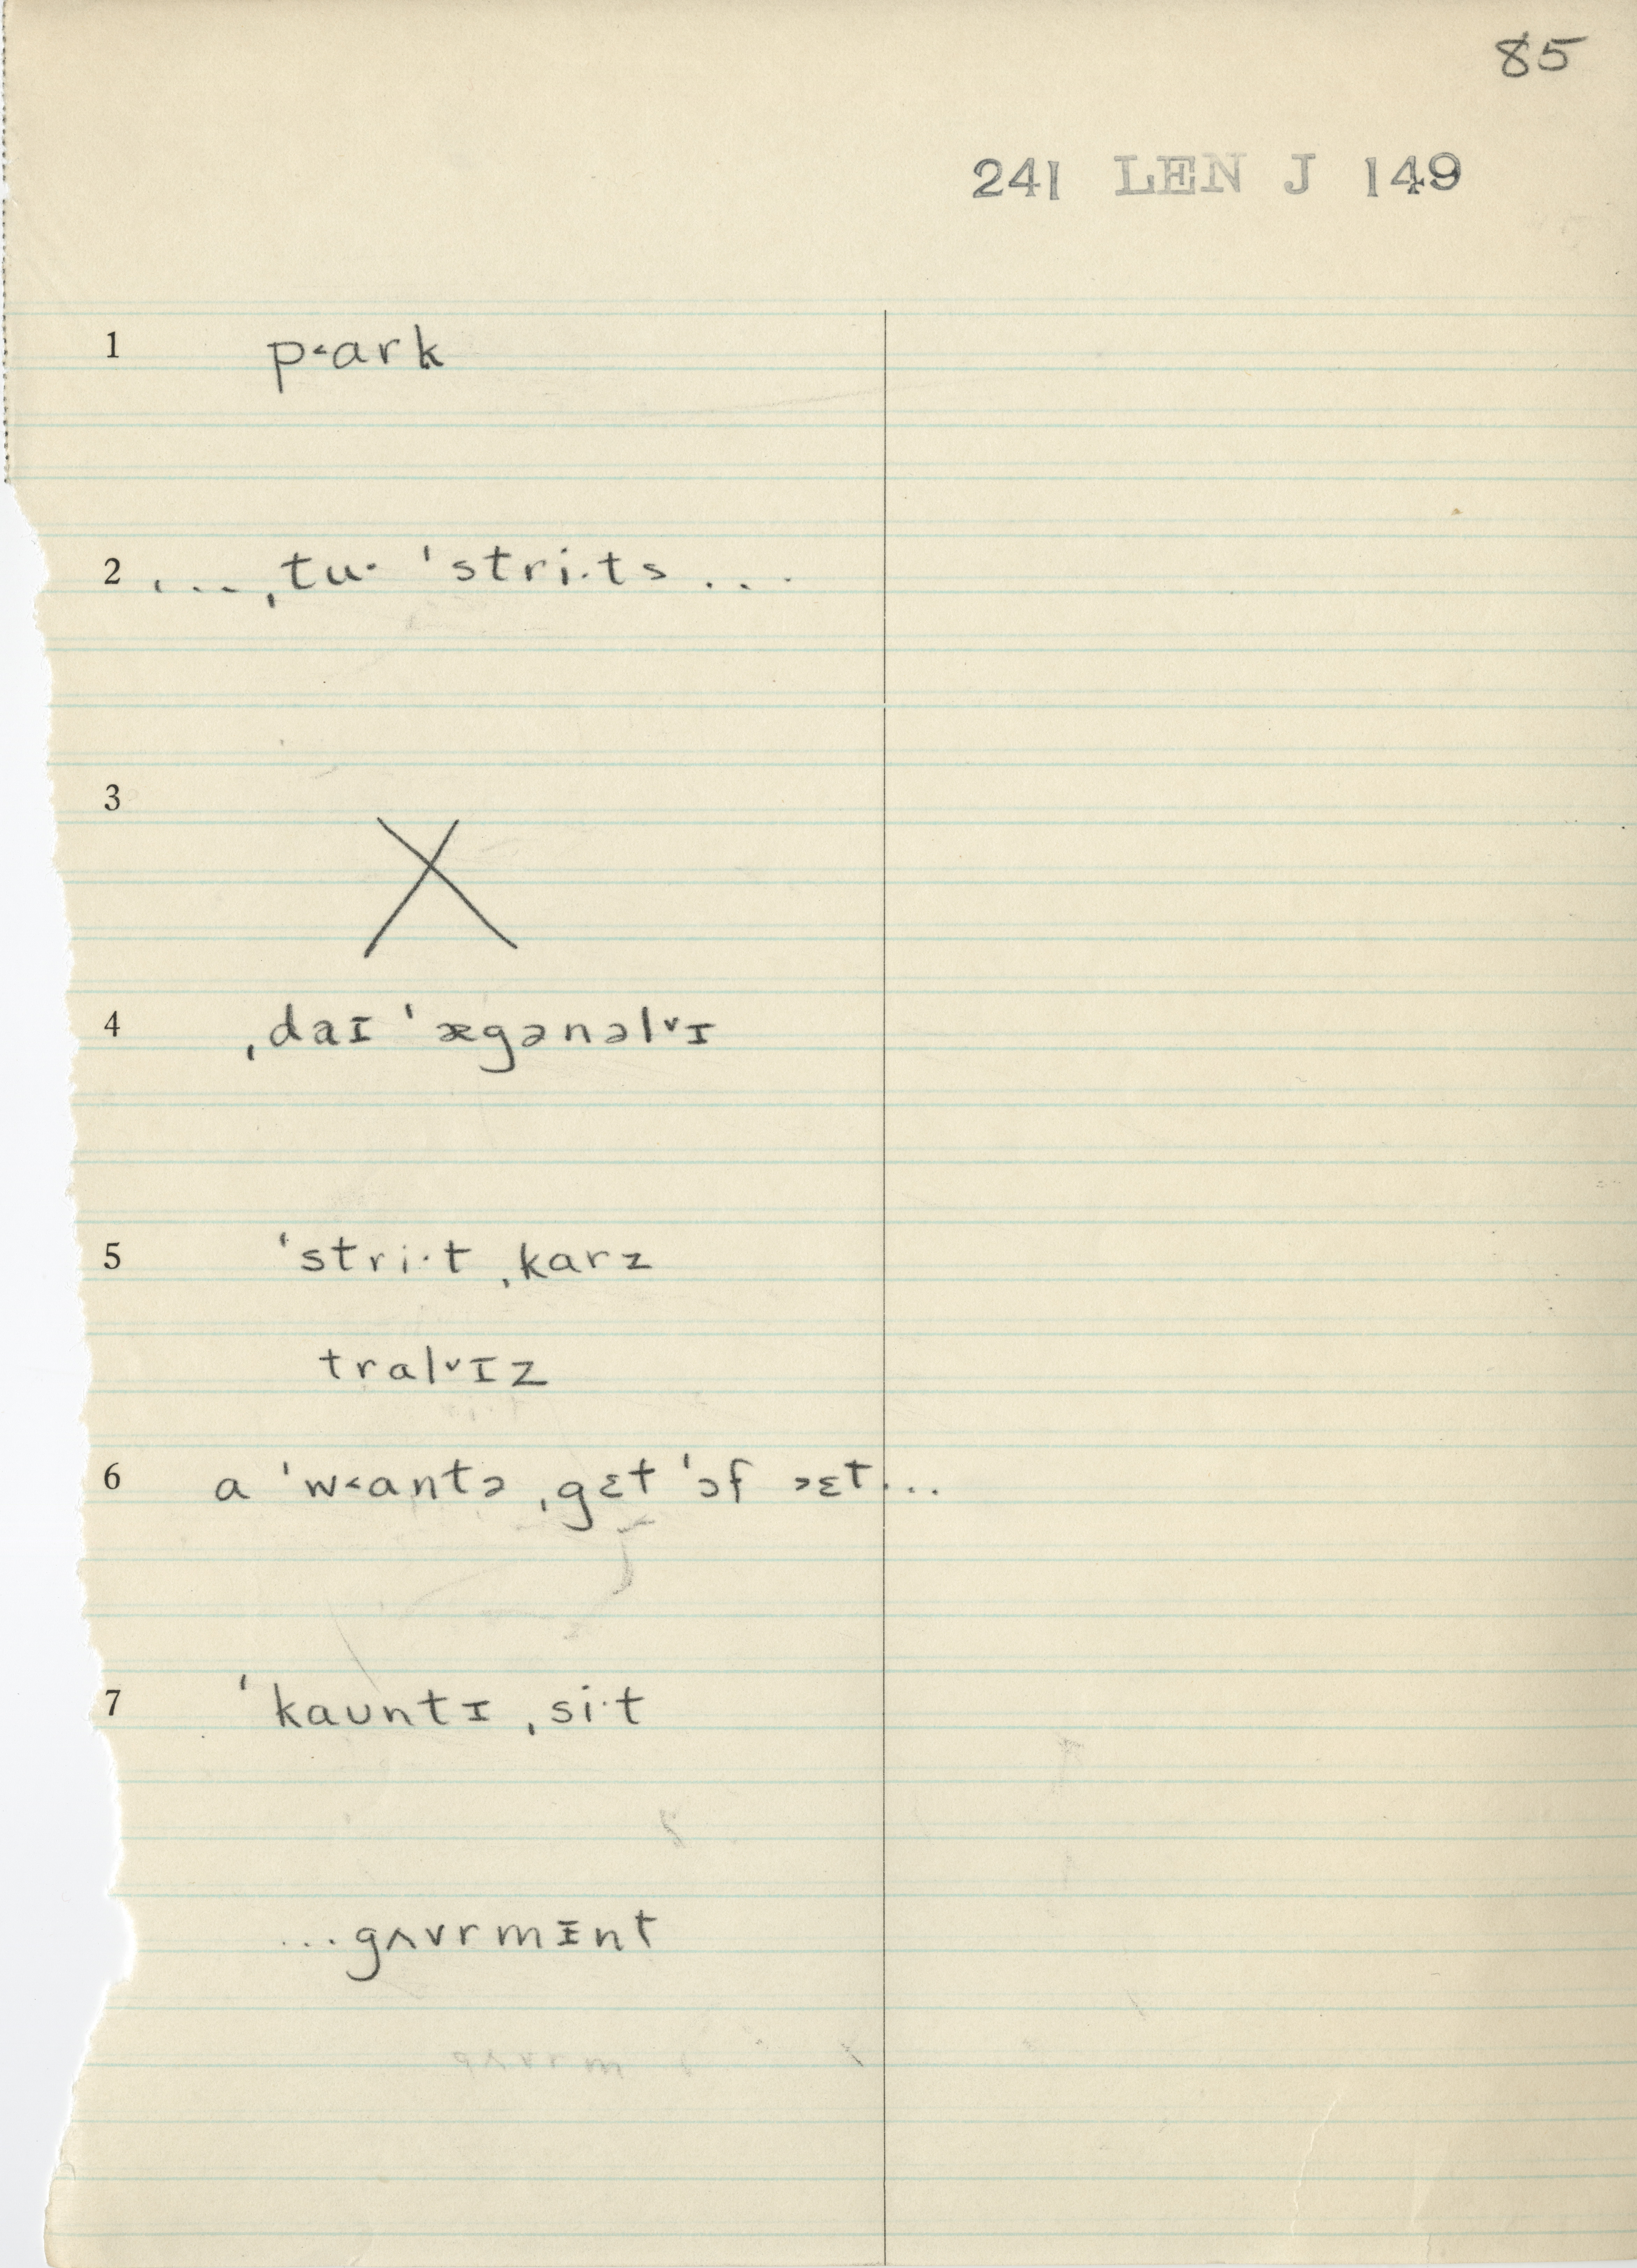 85
241 LEN J 149
1 p˂ark
2 ... ˌtu· ˈstri·ts ...
3
4 ˌdaɪ ˈægənəlᵛɪ
5 ˈstri·t ˌkarz
tralᵛɪz
6 a ˈw˂antə ˌgɛt ˈɔf ɔɛt...
7 ˈkaʊntɪ ˌsi·t
...gʌvrmɪnt